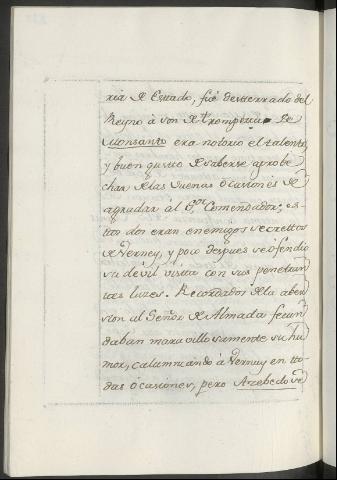 ria de Estado, fué desterrado del
Reyno à son de trompetas. De
Monsanto era notorio el talento,
y buen gusto de saberse aprobe
char de las buenas ocasiones de
agradar al G.or Comendador; es-
tos dos eran enemigos secretos
de Verney, y poco despues se ofendio
su devil vista con sus penetran
tes luzes. Recordados de la aber
sion al Señor de Almada fecun
daban maravillosamente su hu
mor, calumniando à Vernuy en tto-
das ocasiones, pero Azebedo se